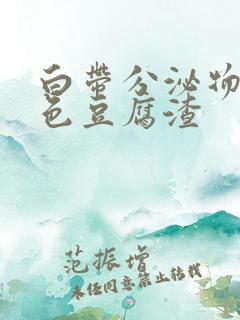 白带分泌物
色豆腐渣
范振增
未经同意禁止转载